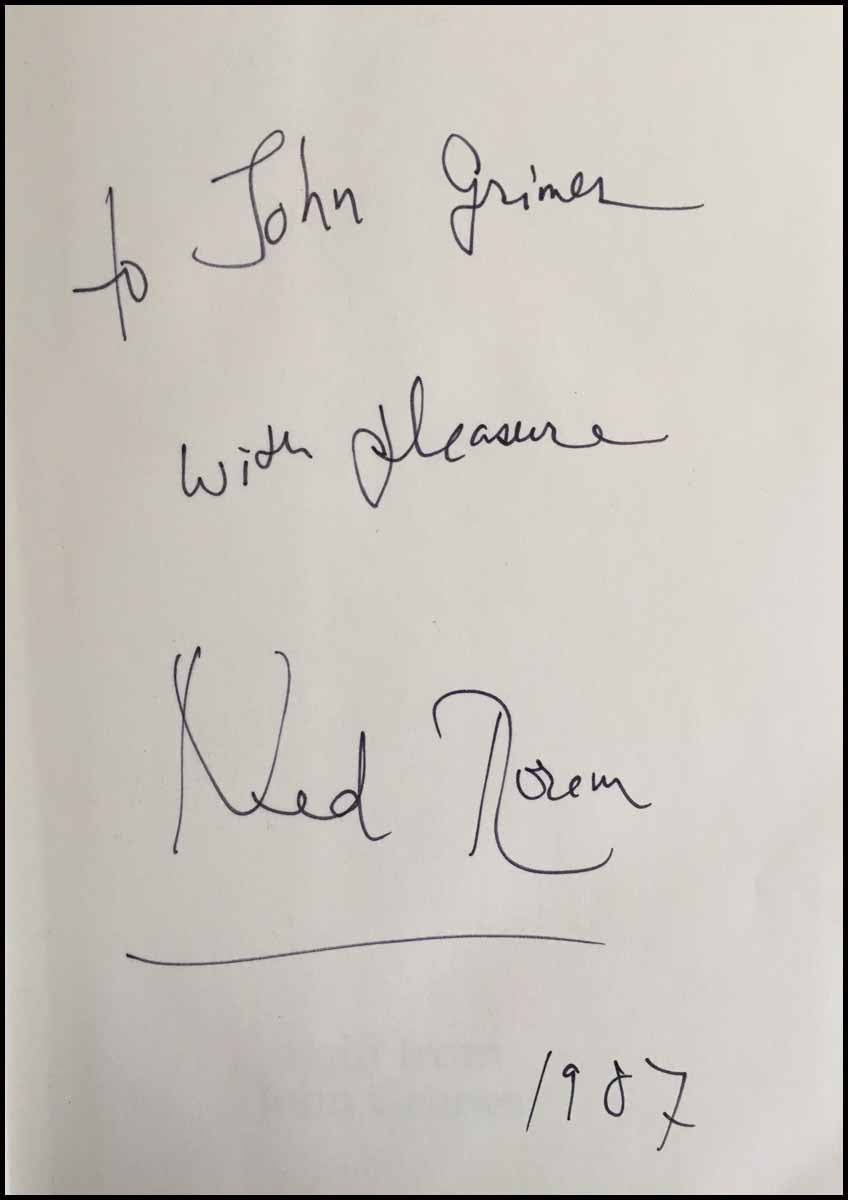 to John Grimes
with pleasure
Ned Rorem
1987